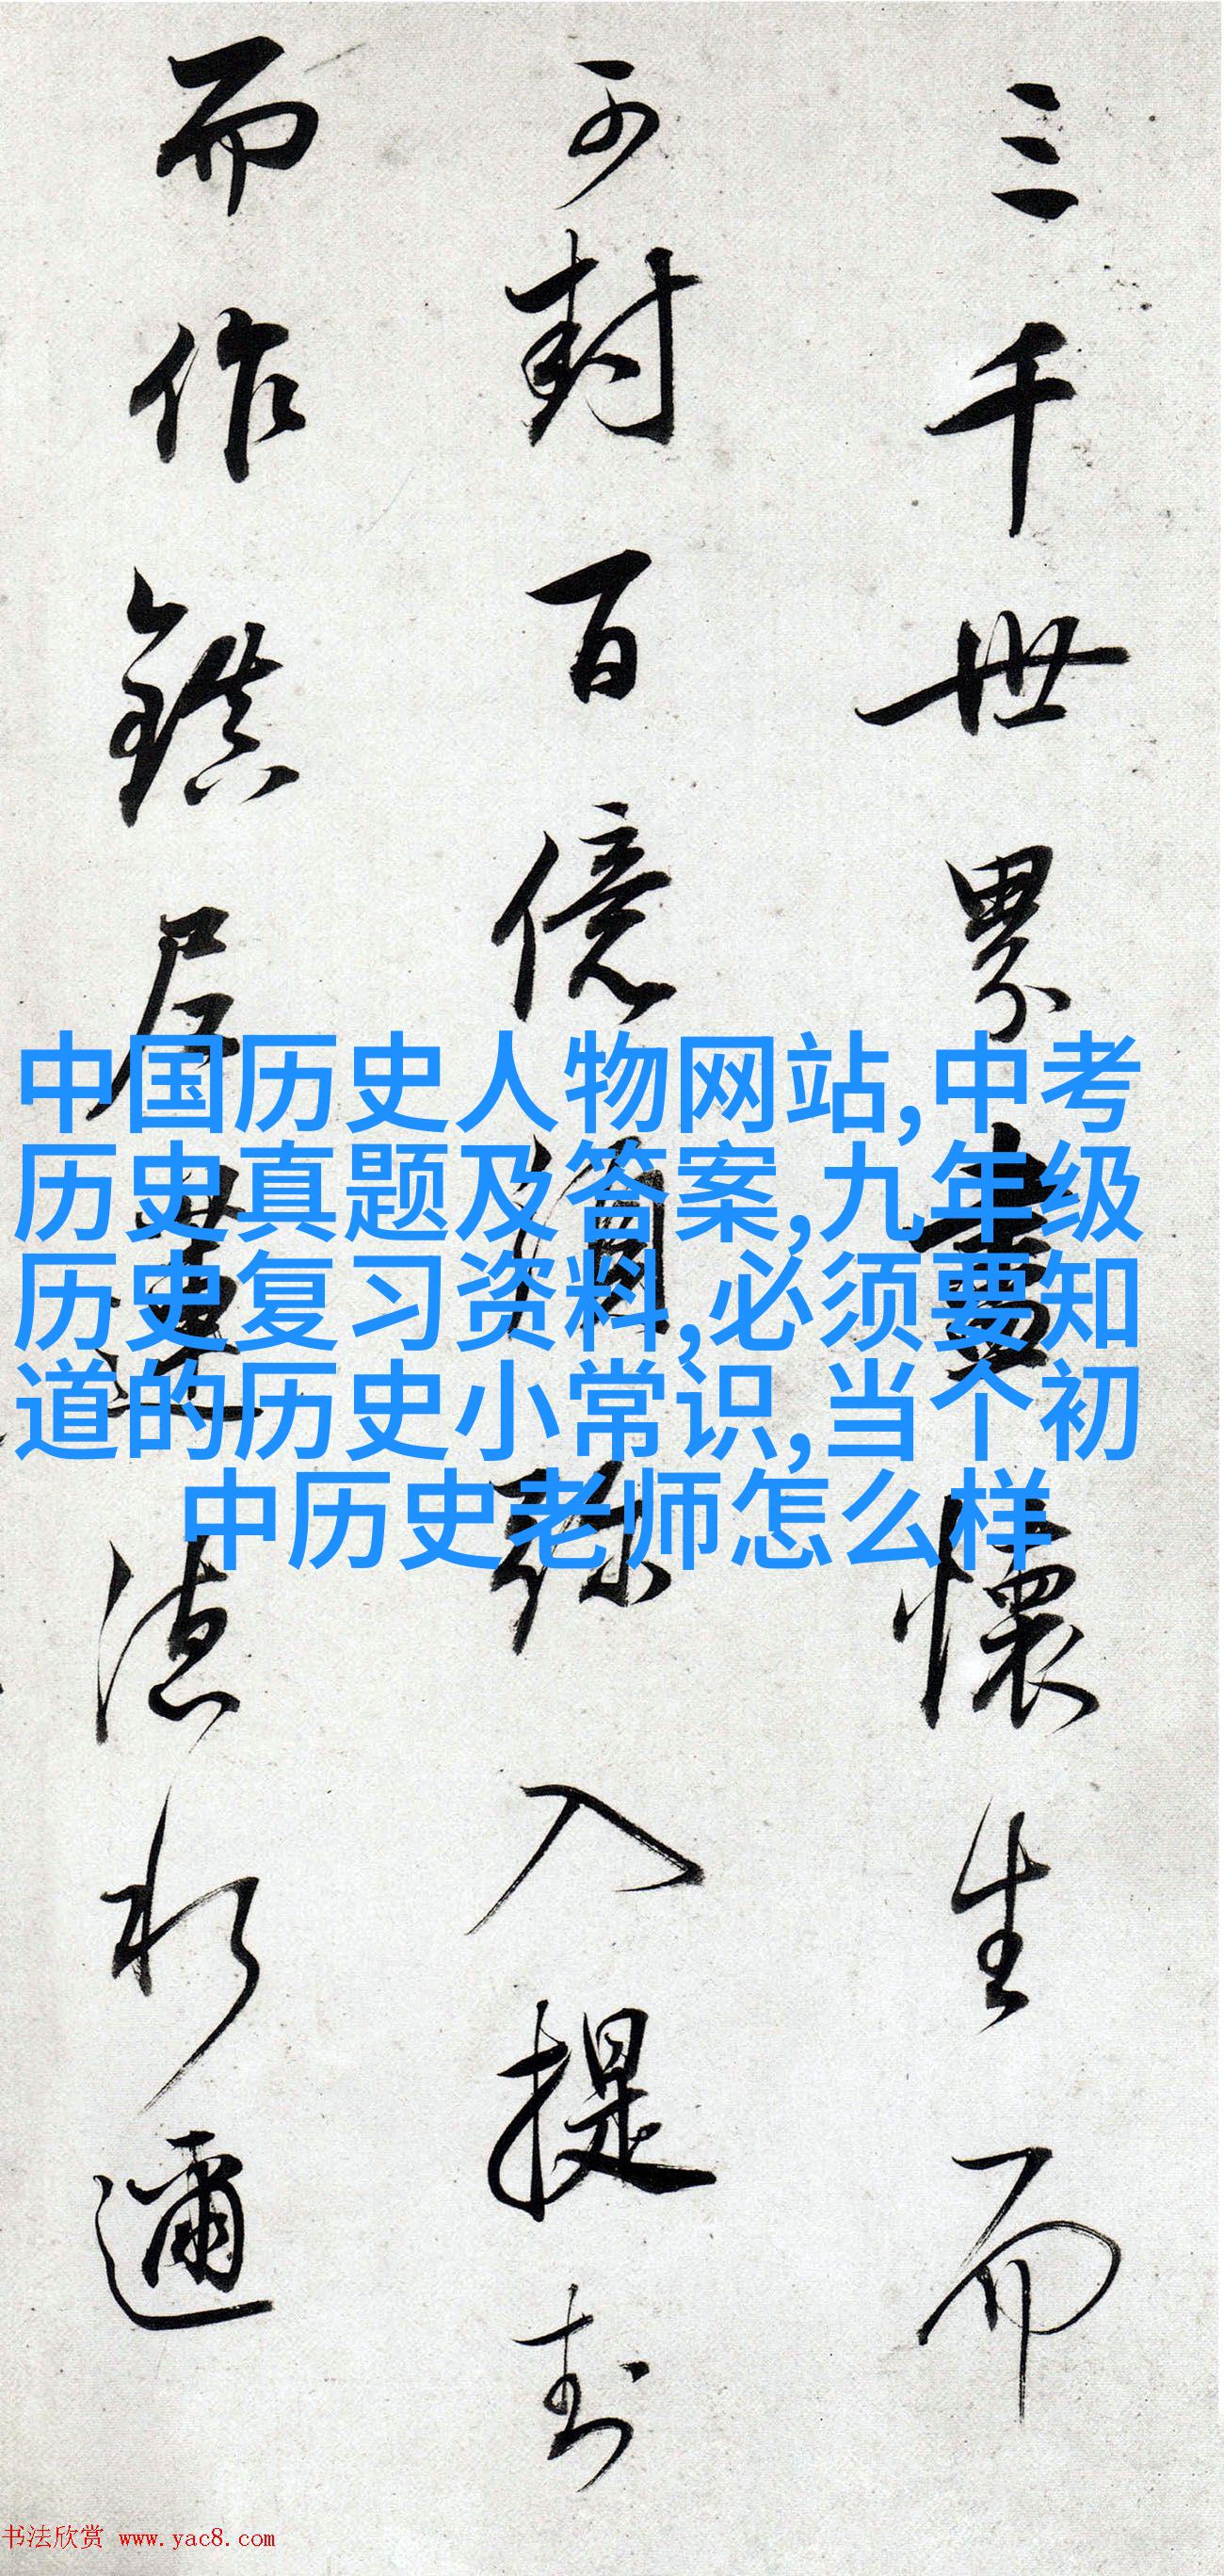 三千世界盡懷生而
可封百億須弥入提封
而作鎮居
法水邇
中国历史人物网站,中考
历史真题及答案,九年级
历史复习资料,必须要知
道的历史小常识,当个初
中历史老师怎么样
书法欣赏 www.yac8.com